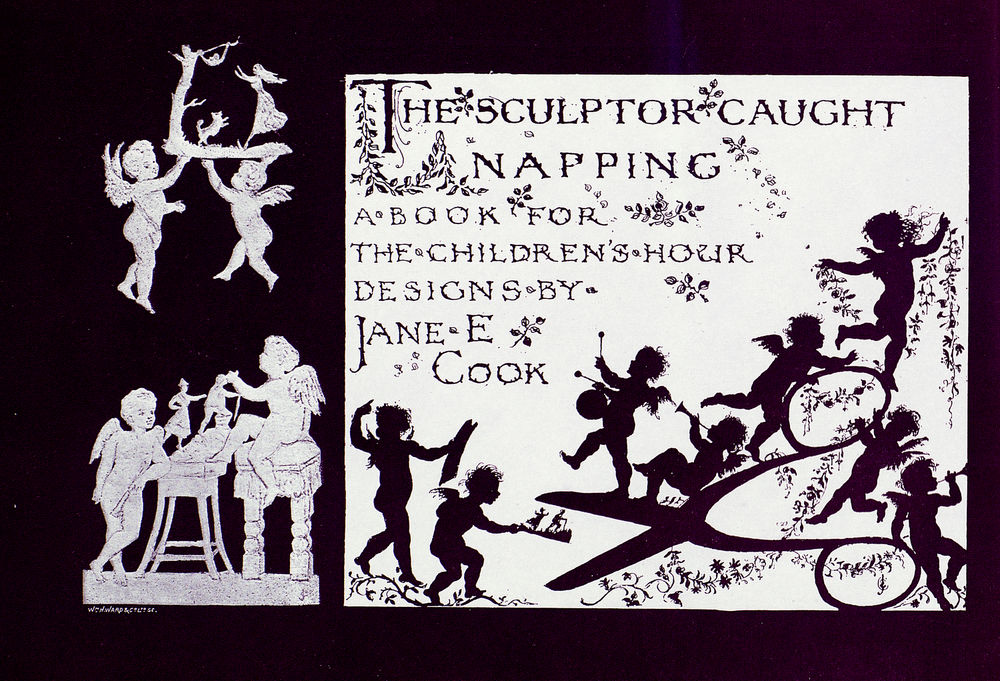 THE SCULPTOR CAUGHT
NAPPING
A BOOK FOR
THE CHILDREN'S HOUR
DESIGNS BY
JANE E
COOK